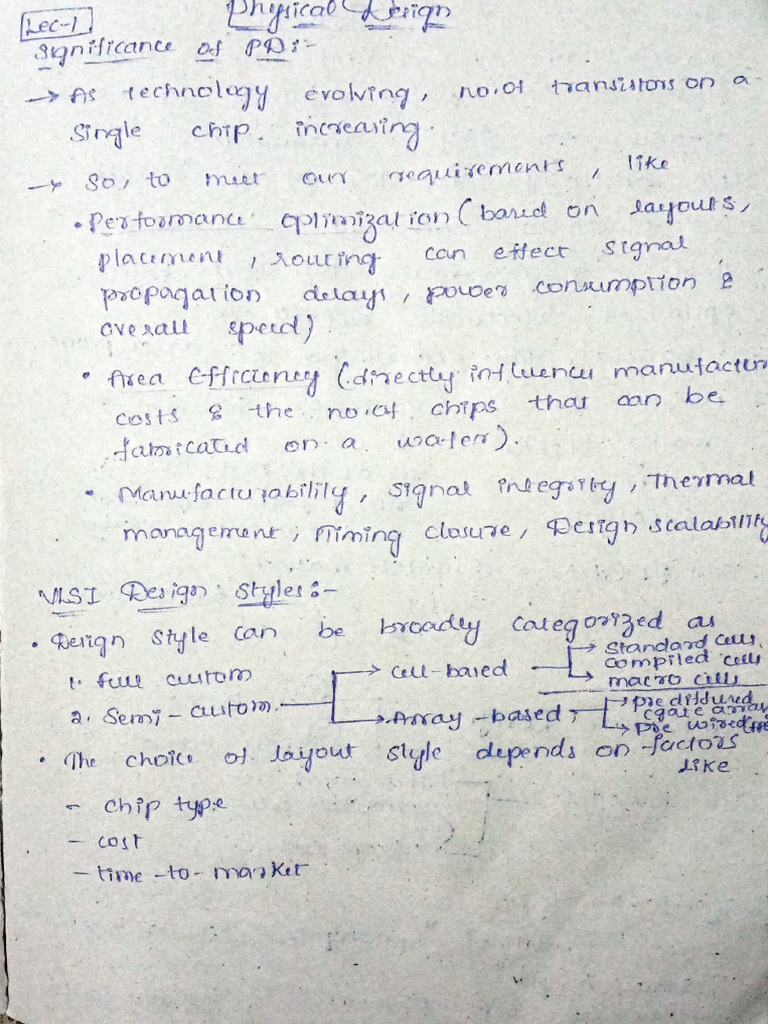 Lec-1
Physical Design
Significance of PD:-
→ As technology evolving, no.of transistors on a
single chip increasing.
→ So, to meet our requirements, like
• Performance optimization (based on layouts,
placement, routing can effect signal
propagation delays, power consumption &
overall speed).
• Area Efficiency (directly influences manufacturin
costs & the no.of chips that can be
fabricated on a wafer).
• Manufacturability, signal integrity, Thermal
management, Timing closure, Design scalability
VLSI Design styles:-
• Design style can be broadly categorized as
1. full custom
2. Semi-custom → cell-based → standard cells,
compiled cells
→ macro cells
→ Array-based, → pre diffused
(gate array
→ pre wired
• The choice of layout style depends on factors
like
- chip type
- cost
- time-to-market